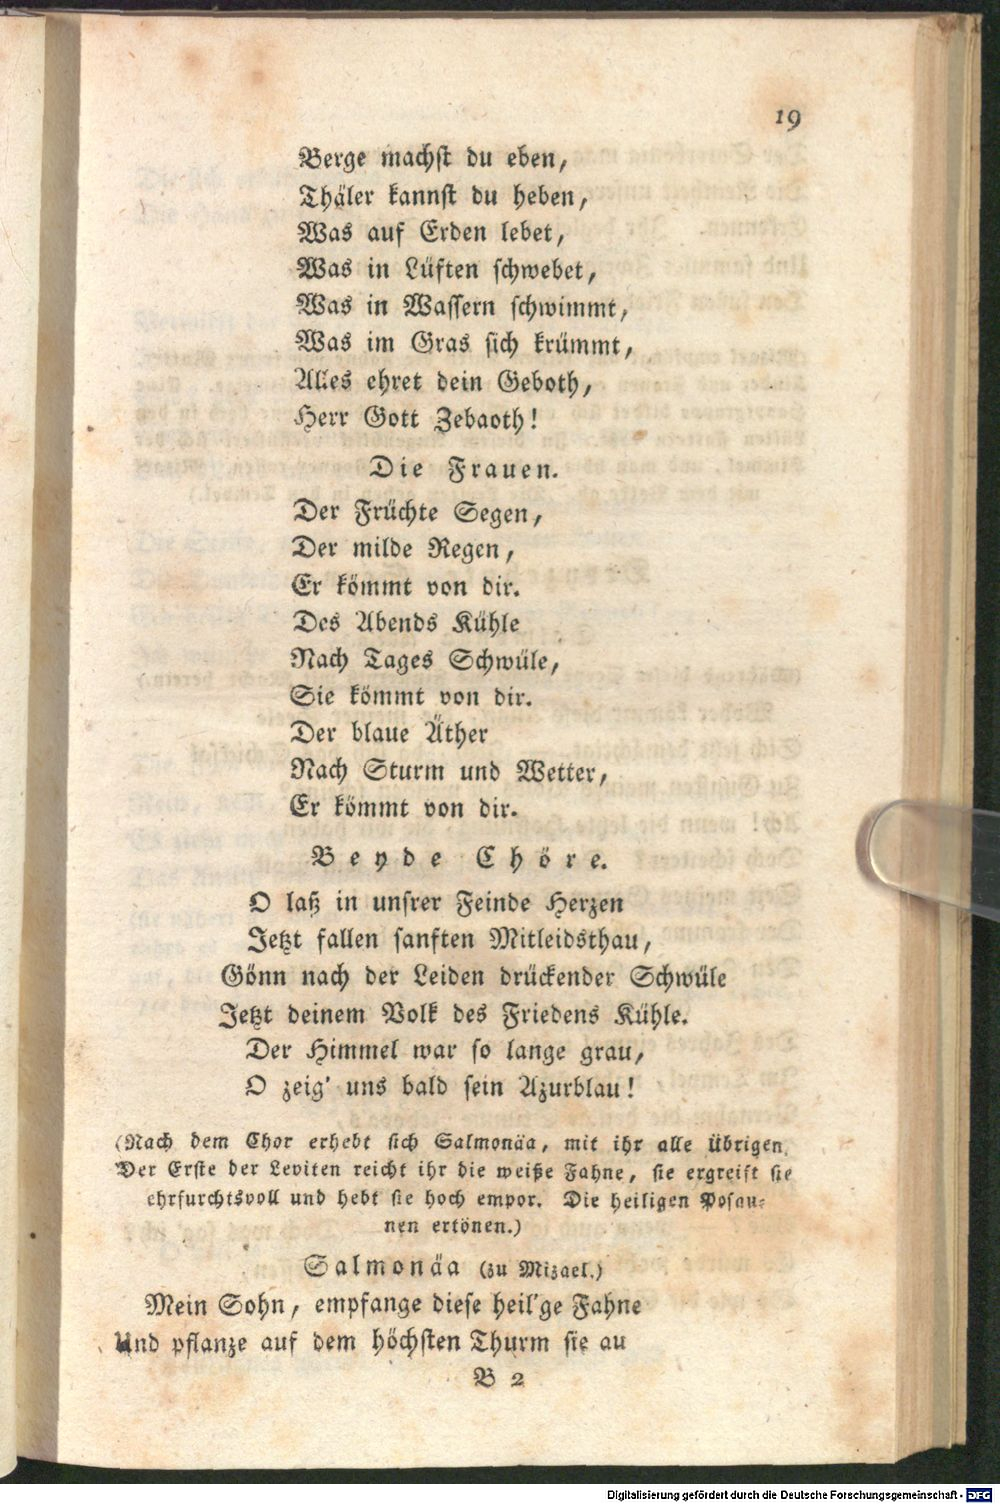 19
Berge machst du eben,
Thäler kannst du heben,
Was auf Erden lebet,
Was in Lüften schwebet,
Was in Wassern schwimmt,
Was im Gras sich krümmt,
Alles ehret dein Geboth,
Herr Gott Zebaoth!
Die Frauen.
Der Früchte Segen,
Der milde Regen,
Er kömmt von dir.
Des Abends Kühle
Nach Tages Schwüle,
Sie kömmt von dir.
Der blaue Äther
Nach Sturm und Wetter,
Er kömmt von dir.
Beyde Chöre.
O laß in unsrer Feinde Herzen
Jetzt fallen sanften Mitleidsthau,
Gönn nach der Leiden drückender Schwüle
Jetzt deinem Volk des Friedens Kühle.
Der Himmel war so lange grau,
O zeig' uns bald sein Azurblau!
(Nach dem Chor erhebt sich Salmonäa, mit ihr alle übrigen.
Der Erste der Leviten reicht ihr die weiße Fahne, sie ergreift sie
ehrfurchtsvoll und hebt sie hoch empor. Die heiligen Posau-
nen ertönen.)
Salmonäa (zu Mizael.)
Mein Sohn, empfange diese heil'ge Fahne
Und pflanze auf dem höchsten Thurm sie au
B 2
Digitalisierung gefördert durch die Deutsche Forschungsgemeinschaft - DFG